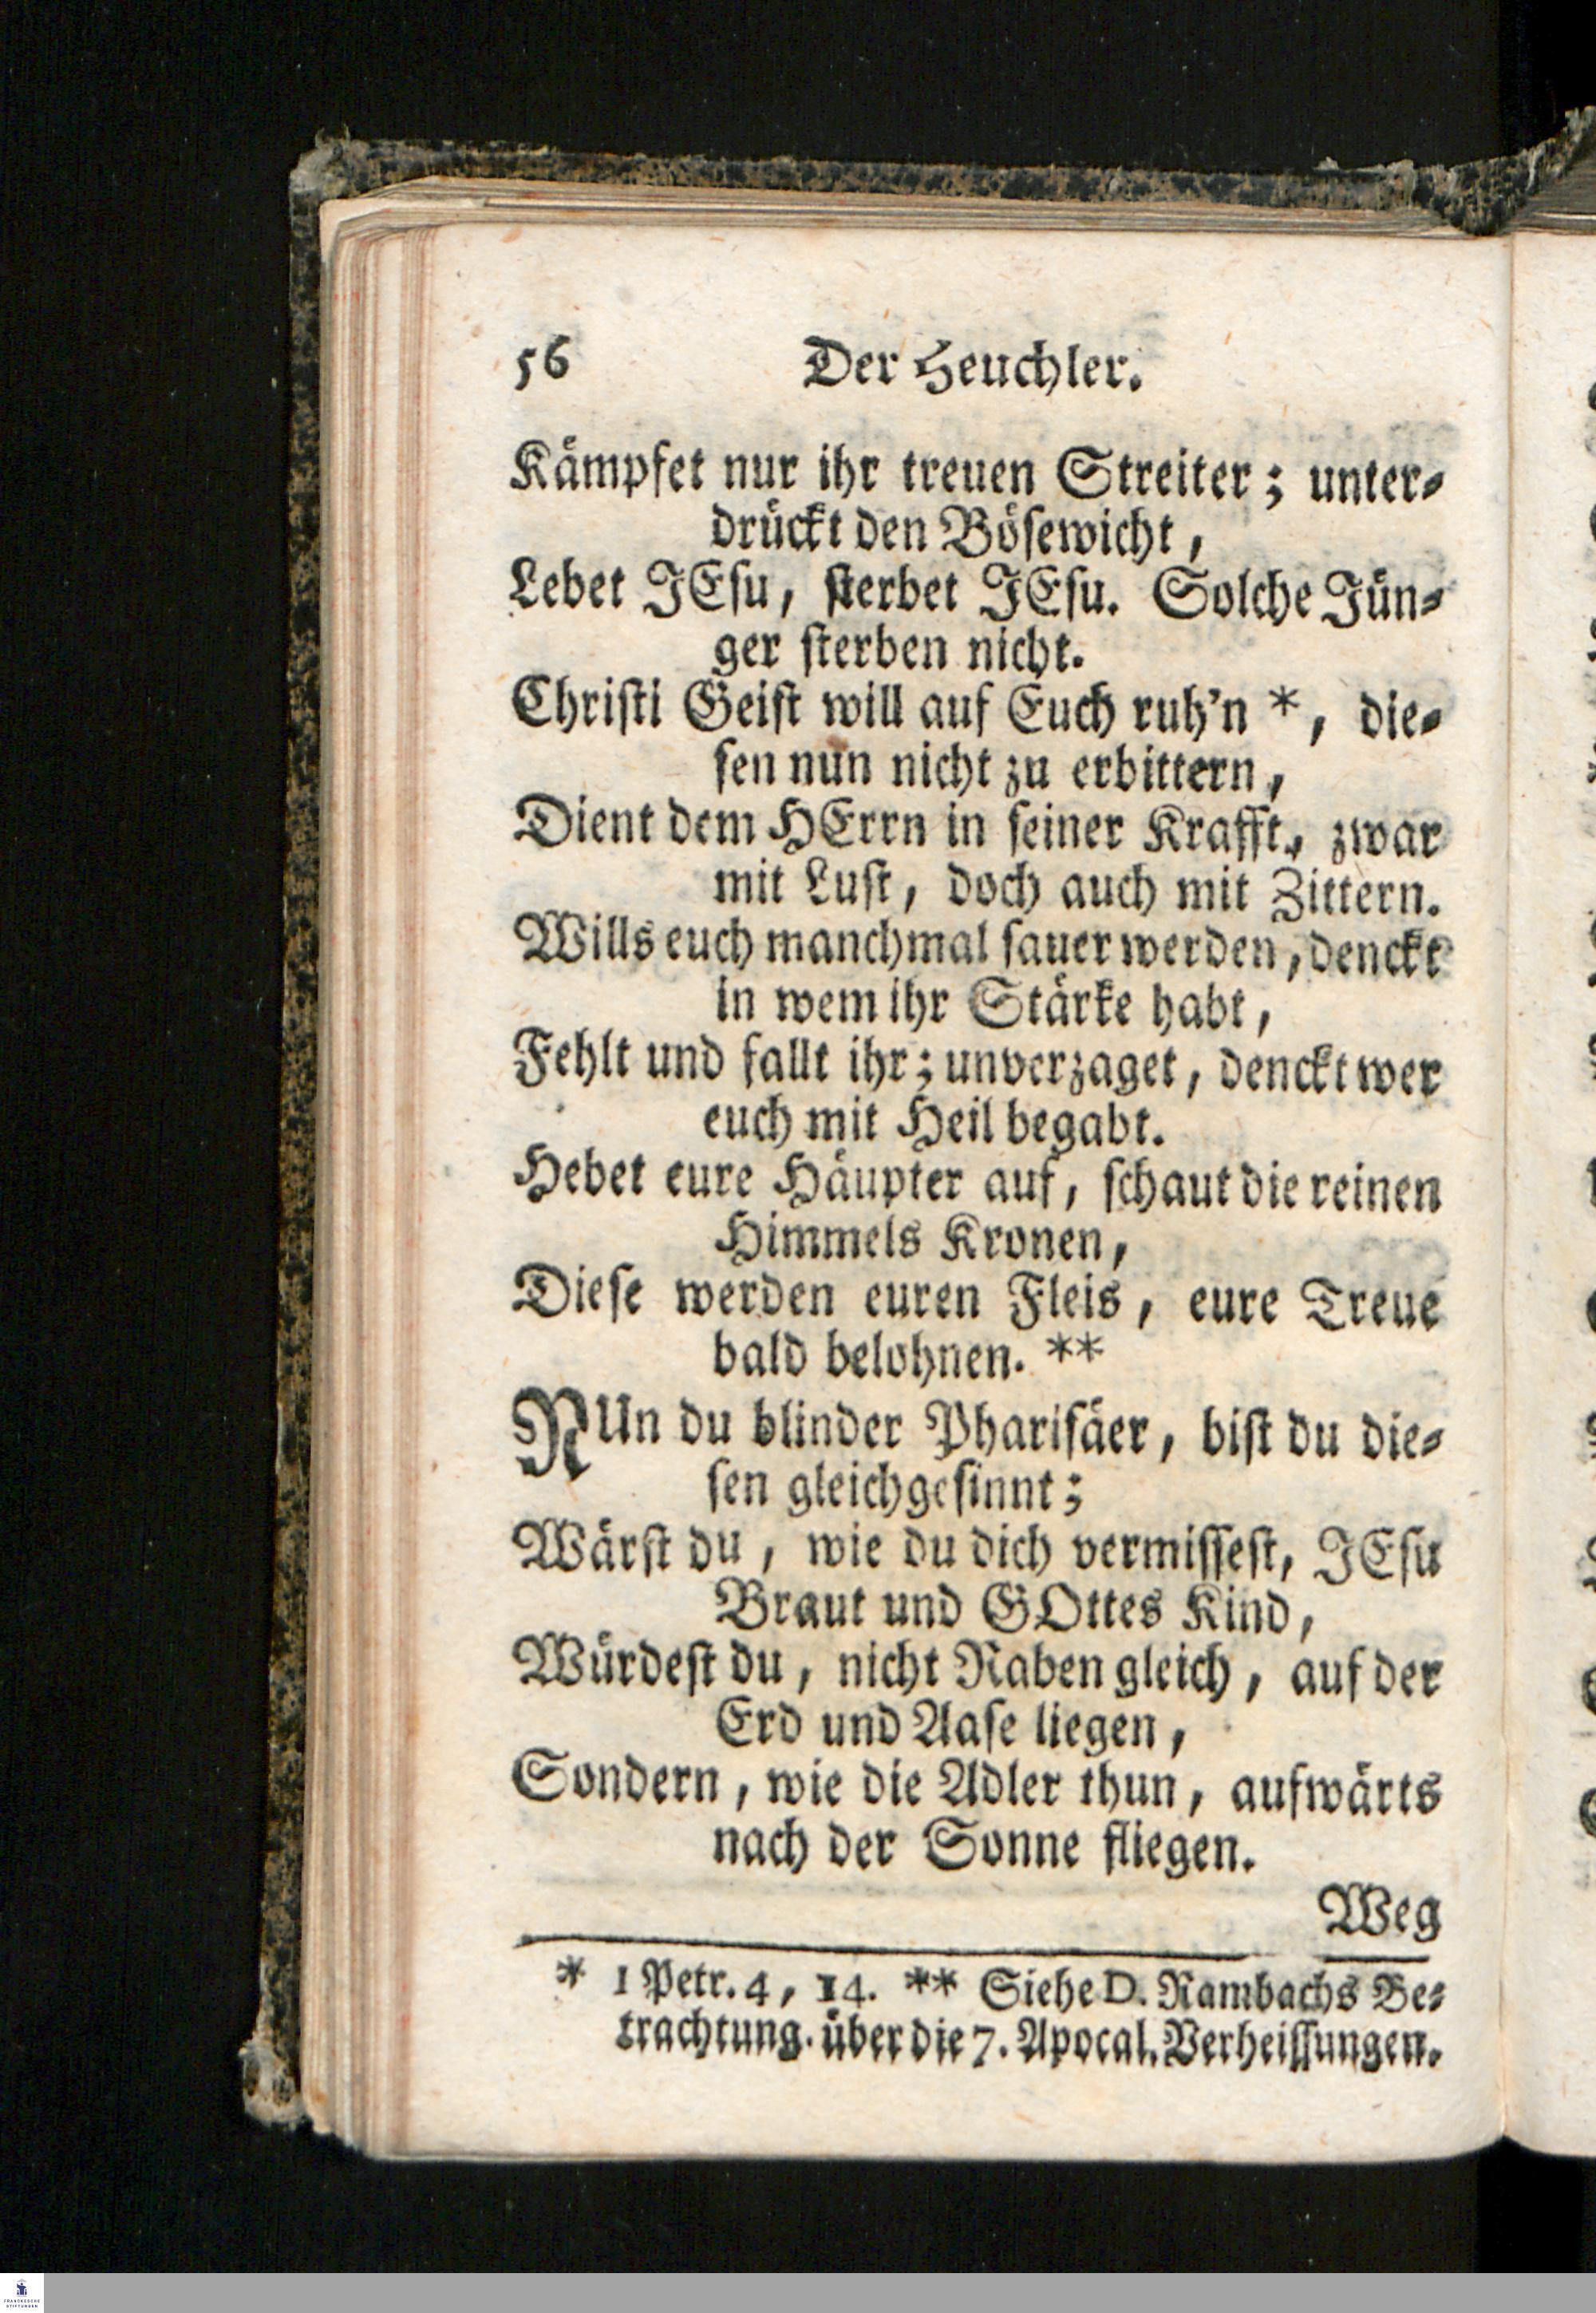 56 Der Heuchler.
Kämpfet nur ihr treuen Streiter; unter-
drückt den Bösewicht,
Lebet JEsu, sterbet JEsu. Solche Jün-
ger sterben nicht.
Christi Geist will auf Euch ruh'n *, die-
sen nun nicht zu erbittern,
Dient dem HErrn in seiner Krafft, zwar
mit Lust, doch auch mit Zittern.
Wills euch manchmal sauer werden, denckt
in wem ihr Stärke habt,
Fehlt und fallt ihr; unverzaget, denckt wer
euch mit Heil begabt.
Hebet eure Häupter auf, schaut die reinen
Himmels Kronen,
Diese werden euren Fleis, eure Treue
bald belohnen. **
NUn du blinder Pharisäer, bist du die-
sen gleichgesinnt;
Wärst du, wie du dich vermissest, JEsu
Braut und GOttes Kind,
Würdest du, nicht Raben gleich, auf der
Erd und Aase liegen,
Sondern, wie die Adler thun, aufwärts
nach der Sonne fliegen.
Weg
* 1 Petr. 4, 14. ** Siehe D. Rambachs Be-
trachtung. über die 7. Apocal. Verheissungen.
FRANCKESCHE
STIFTUNGEN